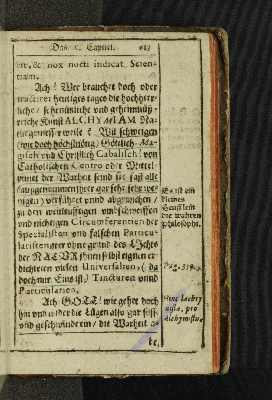 Das X. Capitel. 213
ert, & nox nocti indicat Scien-
tiam.
Ach! Wer brauchet doch oder
tractiret heutiges tages die hochherr-
liche / sehr nützliche und geheimnüß-
reiche Kunst ALCHYMIAM Na-
turgemesser weise? Wil schweigen
(wie doch höchstnötig) Göttlich-Ma-
gisch und Christlich Cabalisch / von
Catholischen Centro oder Mittel-
punct der Warheit seind sie fast alle
(außgenommen ihrer gar sehr sehr we-
nigen) verführet unnd abgewichen /
zu den weitleufftigen umbschweiffen
und nichtigen Circumferentien der
Spezialisten und falschen Particu-
laristen; aber ohne grund des Liechts
der NATUR ihnen selbst eignen er-
dichteten vielen Universalien, (da
doch nur Eins ist) Tincturen unnd
Particularien.
Ach GOTT! wie gehet doch
hin und wider die Lügen also gar süß
und geschwinde ein / die Warheit a-
ber
Es ist ein
kleines
Heufflein
die wahren
philosophi.
Pag. 319.
Hinc lachry
mæ, pro
Alchymistis.